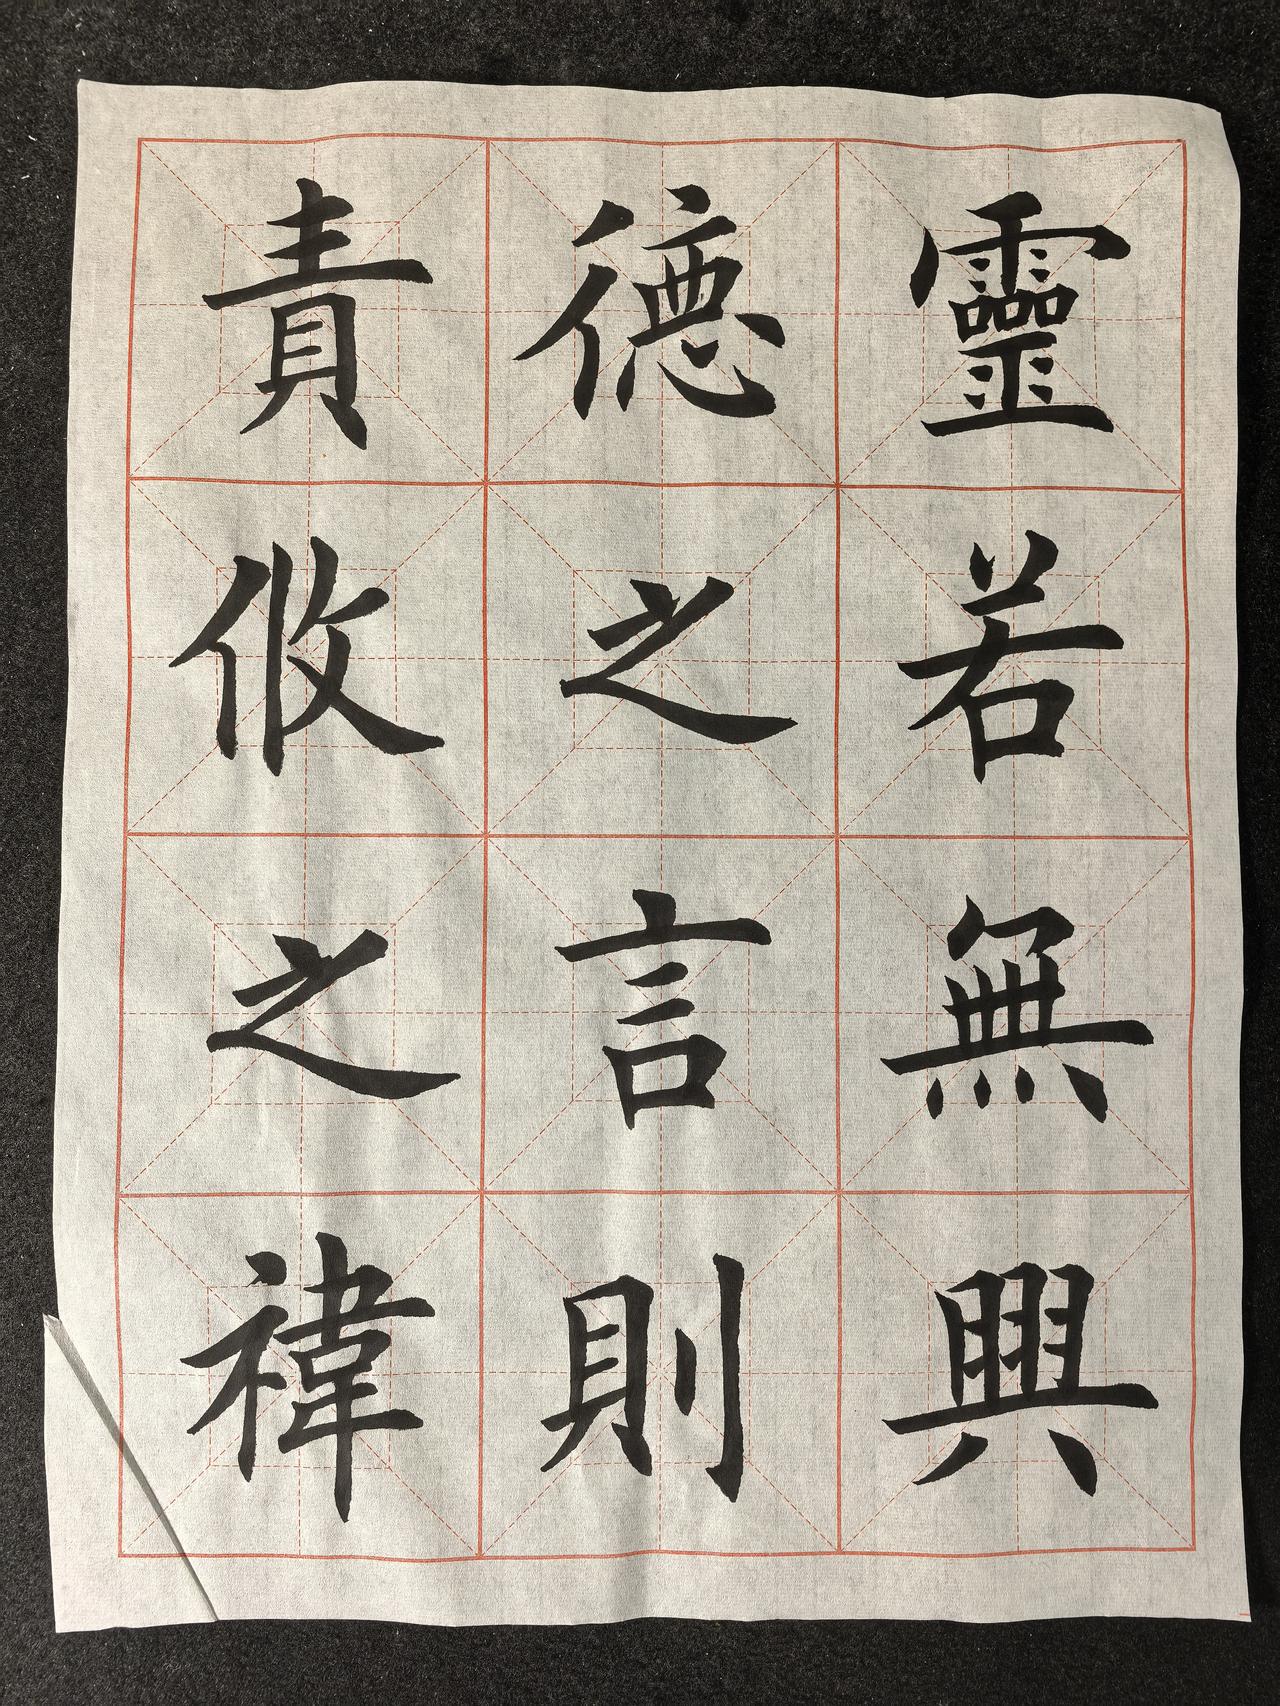 靈若無興
德之言則
責攸之禕